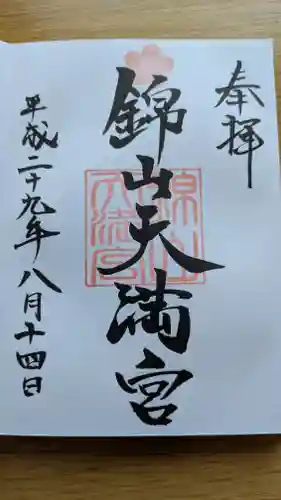 奉拝
錦山天満宮
平成二十九年八月十四日